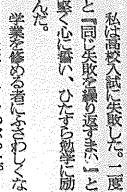 私は高校入試に失敗した。二度
と『同じ失敗を繰り返すまい』と
堅く心に誓い、ひたすら勉学に励
んだ。
学業を修める者にふさわしくな